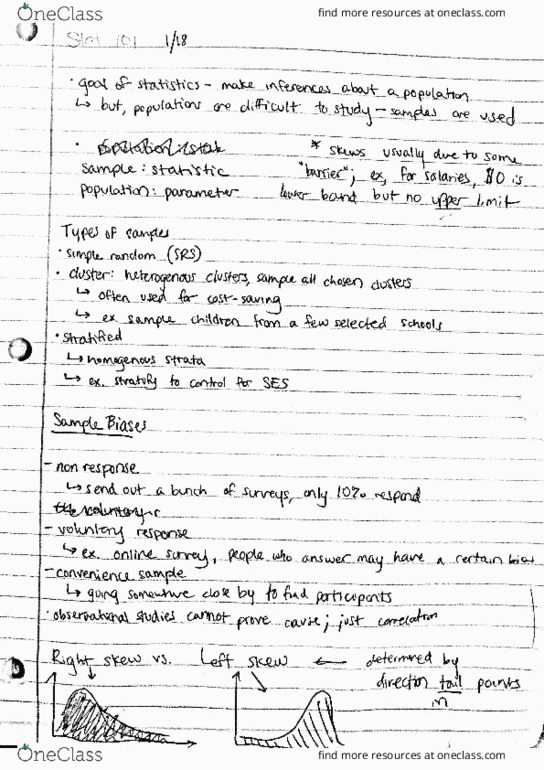 OneClass
find more resources at oneclass.com
Stat 101 1/18
· goal of statistics - make inferences about a population
↳ but, populations are difficult to study - samples are used
·
sample : statistic
population : parameter
* skews usually due to some
"barrier"; ex, for salaries, $0 is
lower band but no upper limit
Types of samples
· simple random (SRS)
· cluster: heterogenous clusters, sample all chosen clusters
↳ often used for cost-saving
↳ ex. sample children from a few selected schools
· stratified
↳ homogenous strata
↳ ex. stratify to control for SES
Sample Biases
- non response
↳ send out a bunch of surveys, only 10% respond
- voluntary response
↳ ex. online survey, people who answer may have a certain bias
- convenience sample
↳ going somewhere close by to find participants
· observational studies cannot prove cause; just correlation
Right skew vs. Left skew ← determined by
direction tail points
in
OneClass
find more resources at oneclass.com